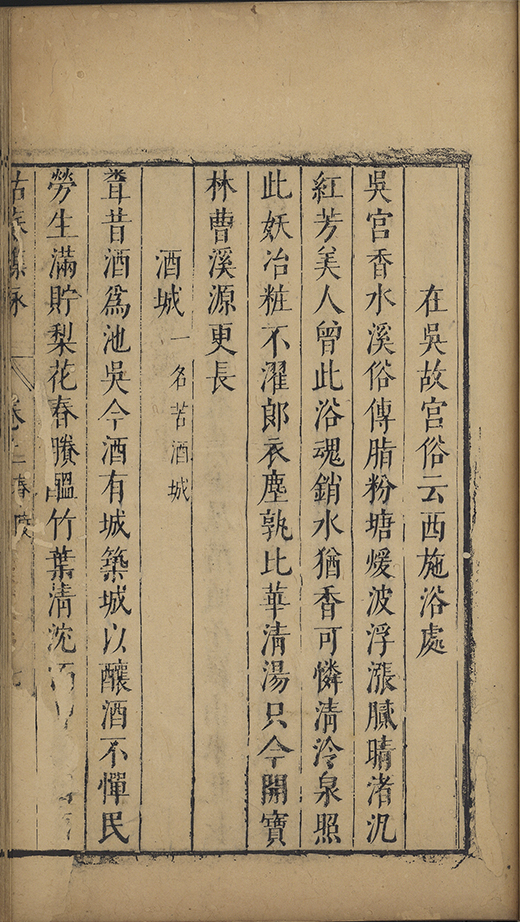 在吳故宮俗云西施浴處
吳宮香水溪俗傳脂粉塘煖波浮漲膩晴渚汎
紅芳美人曾此浴魂銷水猶香可憐清泠泉照
此妖冶粧不濯郎衣塵孰比華清湯只今開寶
林曹溪源更長
酒城一名苦酒城
聾昔酒為池吳今酒有城築城以釀酒不憚民
勞生滿貯梨花春賸醞竹葉清沈酒
卷二